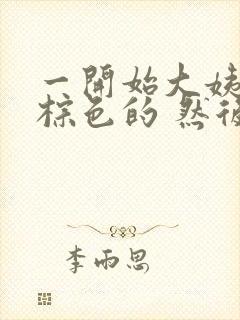 一開始大姨
棕色的 然後
李雨思